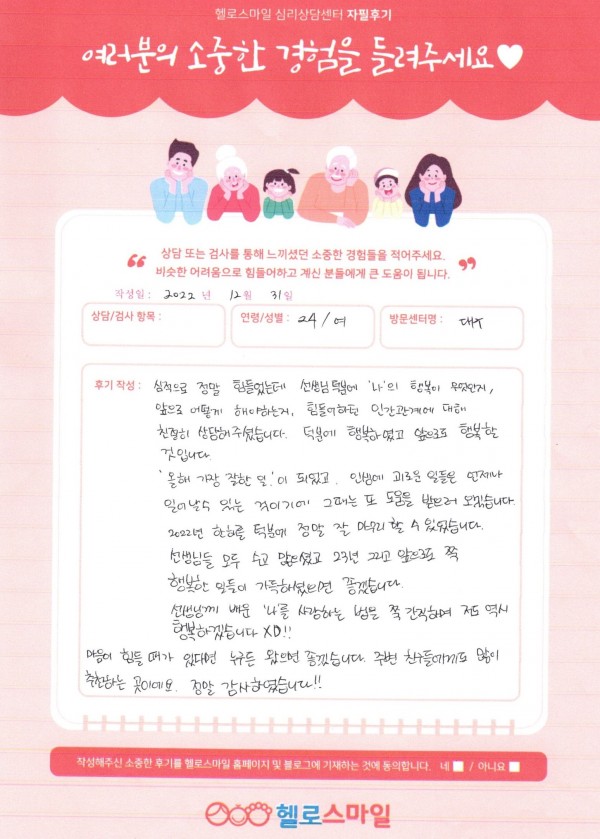 헬로스마일 심리상담센터 자필후기
여러분의 소중한 경험을 들려주세요♥
“ 상담 또는 검사를 통해 느끼셨던 소중한 경험들을 적어주세요.
비슷한 어려움으로 힘들어하고 계신 분들에게 큰 도움이 됩니다. ”
작성일 : 2022 년 12월 31일
상담/검사 항목 :
연령/성별 : 24/여
방문센터명 :
후기 작성 : 심적으로 정말 힘들었는데 선생님덕분에 '나'의 행복이 무엇인지,
앞으로 어떻게 해야하는지, 힘들어하던 인간관계에 대해
친절히 상담해주셨습니다. 덕분에 행복하였고 앞으로도 행복할
것입니다.
'올해 가장 잘한 일'이 되었고, 인생에 괴로운 일들은 언제나
일어날수 있는 것이기에 그때는 또 도움을 받으러 오겠습니다.
2022년 한해를 덕분에 정말 잘 마무리 할 수 있었습니다.
선생님들 모두 수고 많으셨고 23년 그리고 앞으로도 쭉
행복한 일들이 가득하셨으면 좋겠습니다.
선생님께 배운 '나'를 사랑하는 법을 쭉 간직하며 저도 역시
행복하겠습니다 XD!!
마음이 힘들 때가 있다면 누구든 왔으면 좋겠습니다. 주변 친구들에게도 많이
추천하는 곳이에요. 정말 감사하였습니다!!
작성해주신 소중한 후기를 헬로스마일 홈페이지 및 블로그에 기재하는 것에 동의합니다. 네 / 아니요
헬로스마일